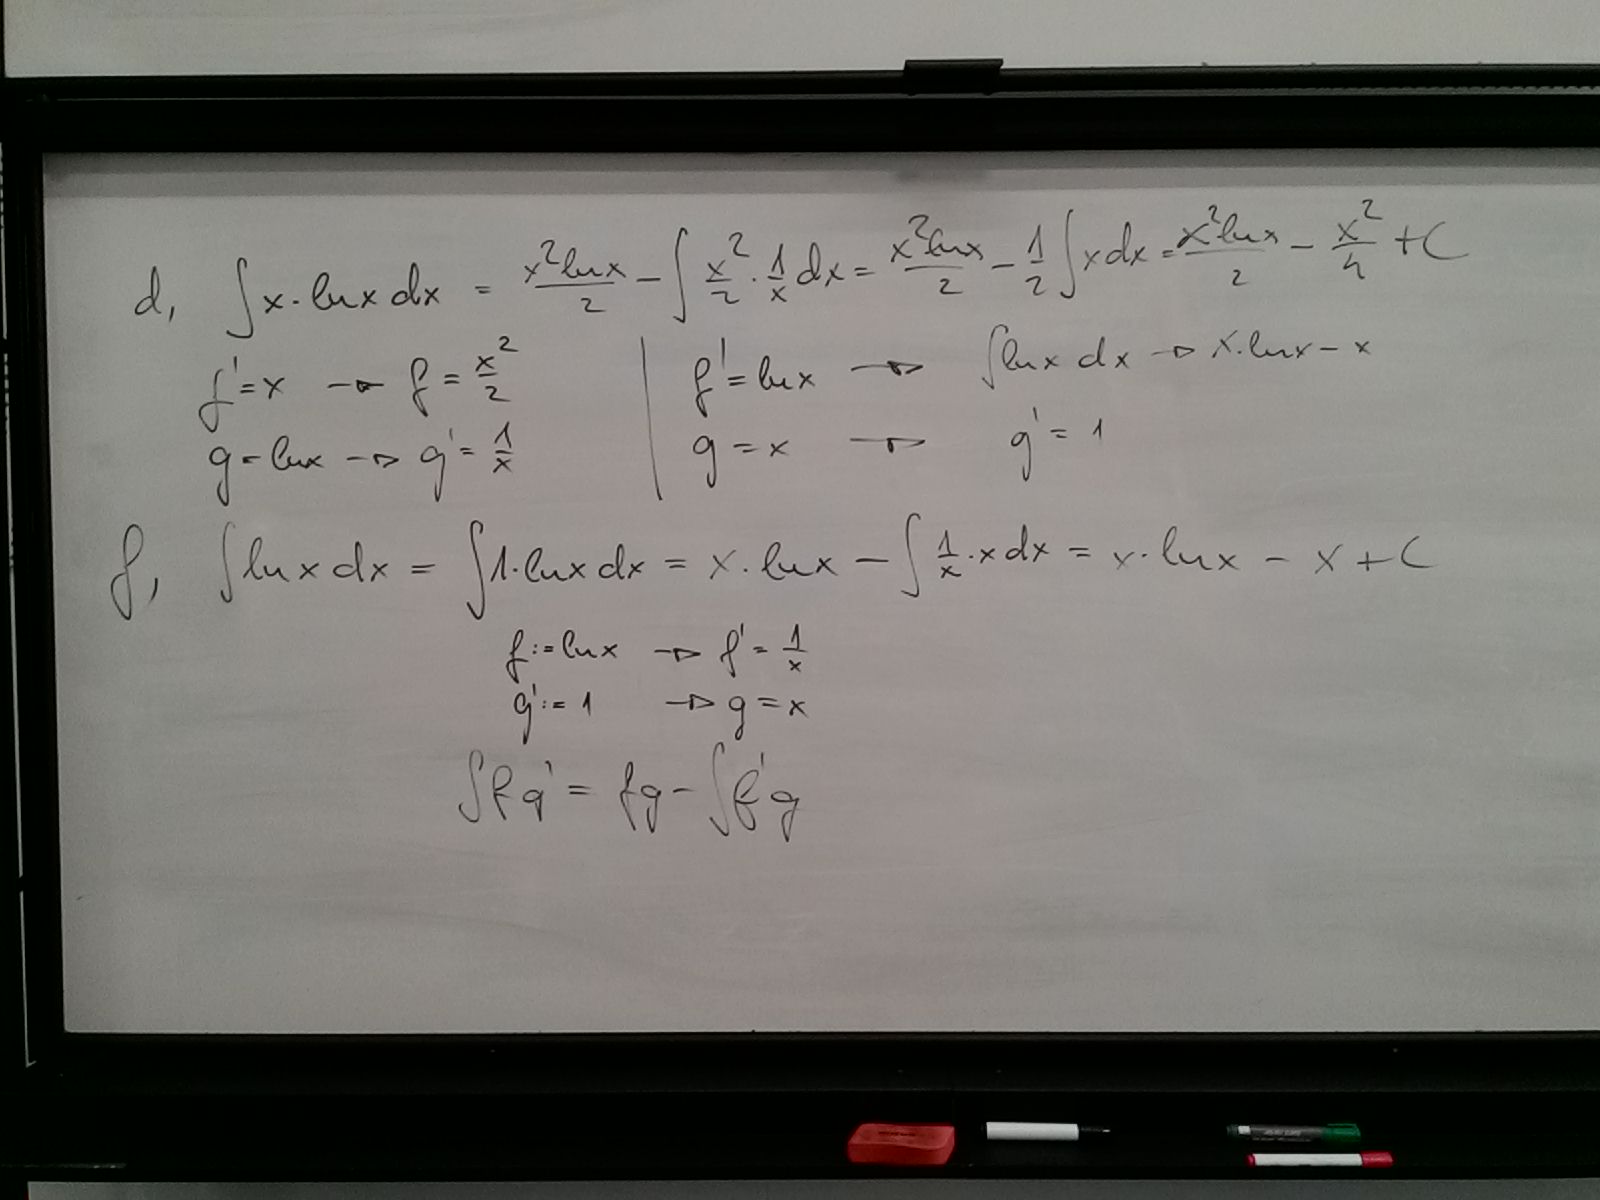 d, ∫x·lnx dx = x²lnx/2 - ∫ x²/2 · 1/x dx = x²lnx/2 - 1/2 ∫x dx = x²lnx/2 - x²/4 + C
f'=x → f = x²/2 | f'=lnx → ∫lnx dx → x·lnx-x
g=lnx → g'=1/x | g=x → g'=1
f, ∫lnx dx = ∫1·lnx dx = x·lnx - ∫1/x·x dx = x·lnx - x + C
f:=lnx → f'=1/x
g':=1 → g=x
∫fg' = fg-∫f'g